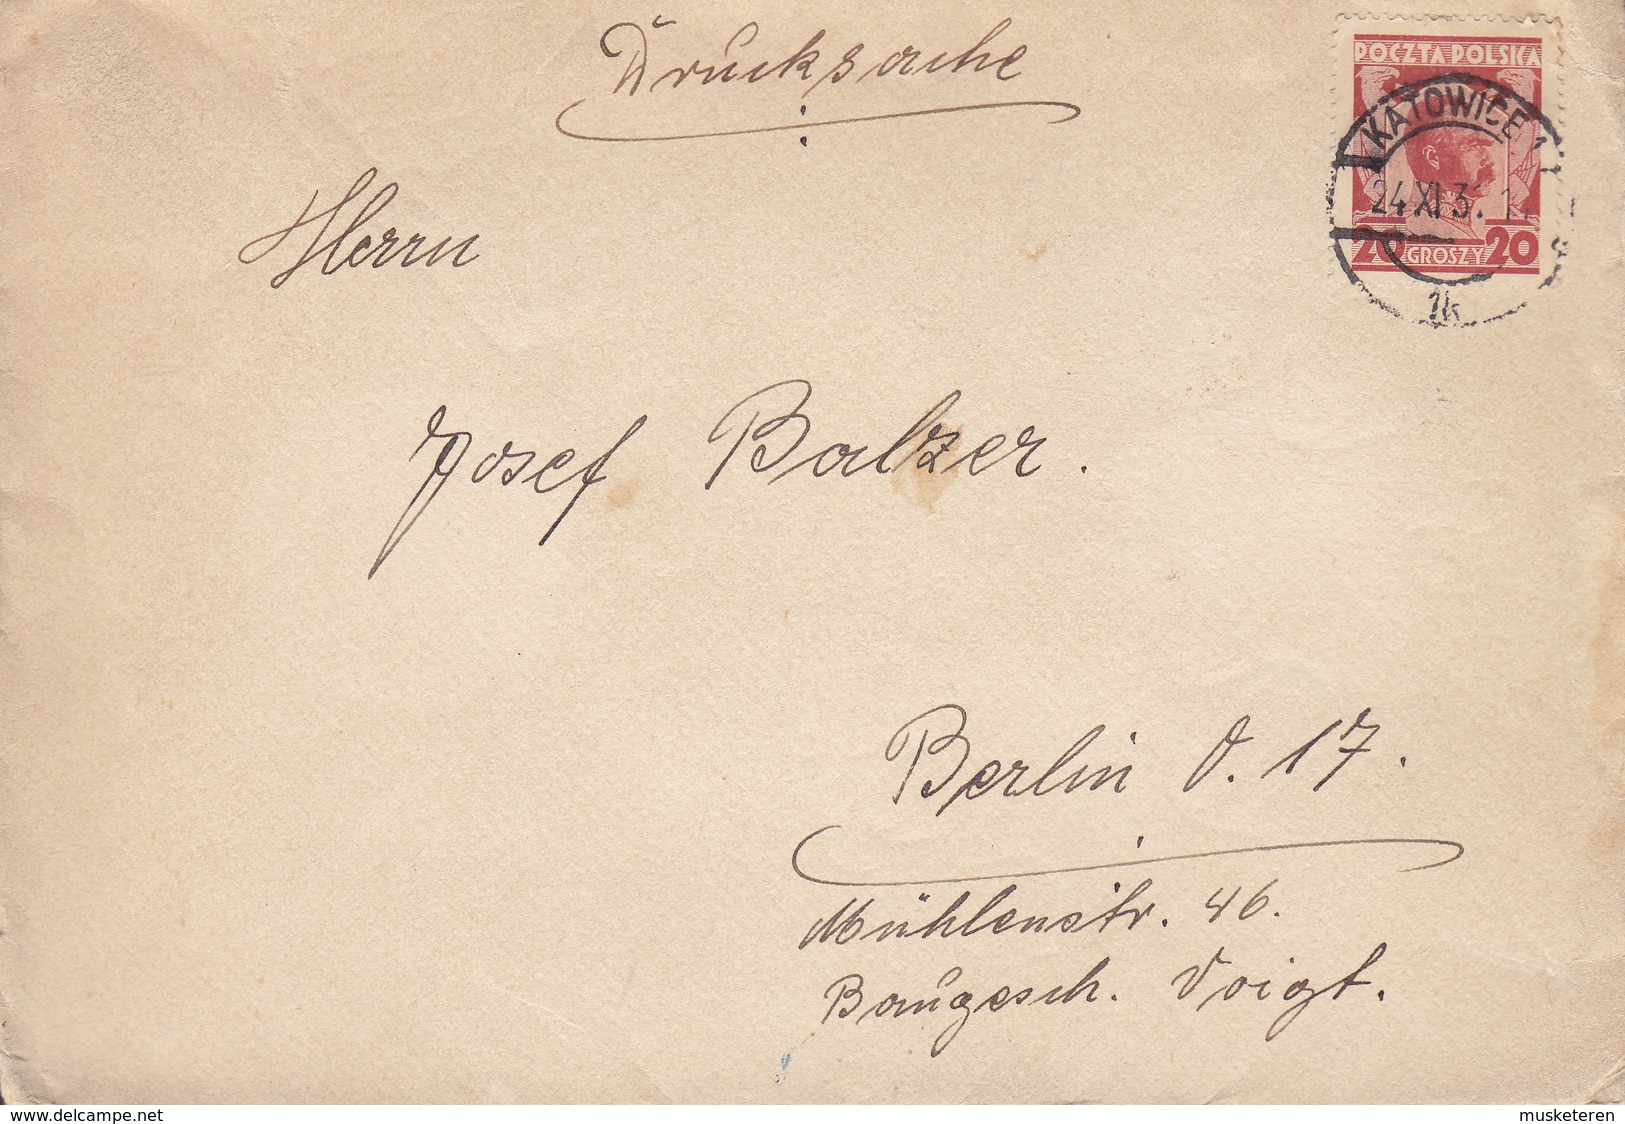 Drucksache
POCZTA POLSKA
KATOWICE 1
24 XI 3
20 GROSZY 20
1k
Herrn
Josef Balzer.
Berlin O. 17.
Mühlenstr. 46.
Baugesch. Voigt.
www.delcampe.net
musketeren